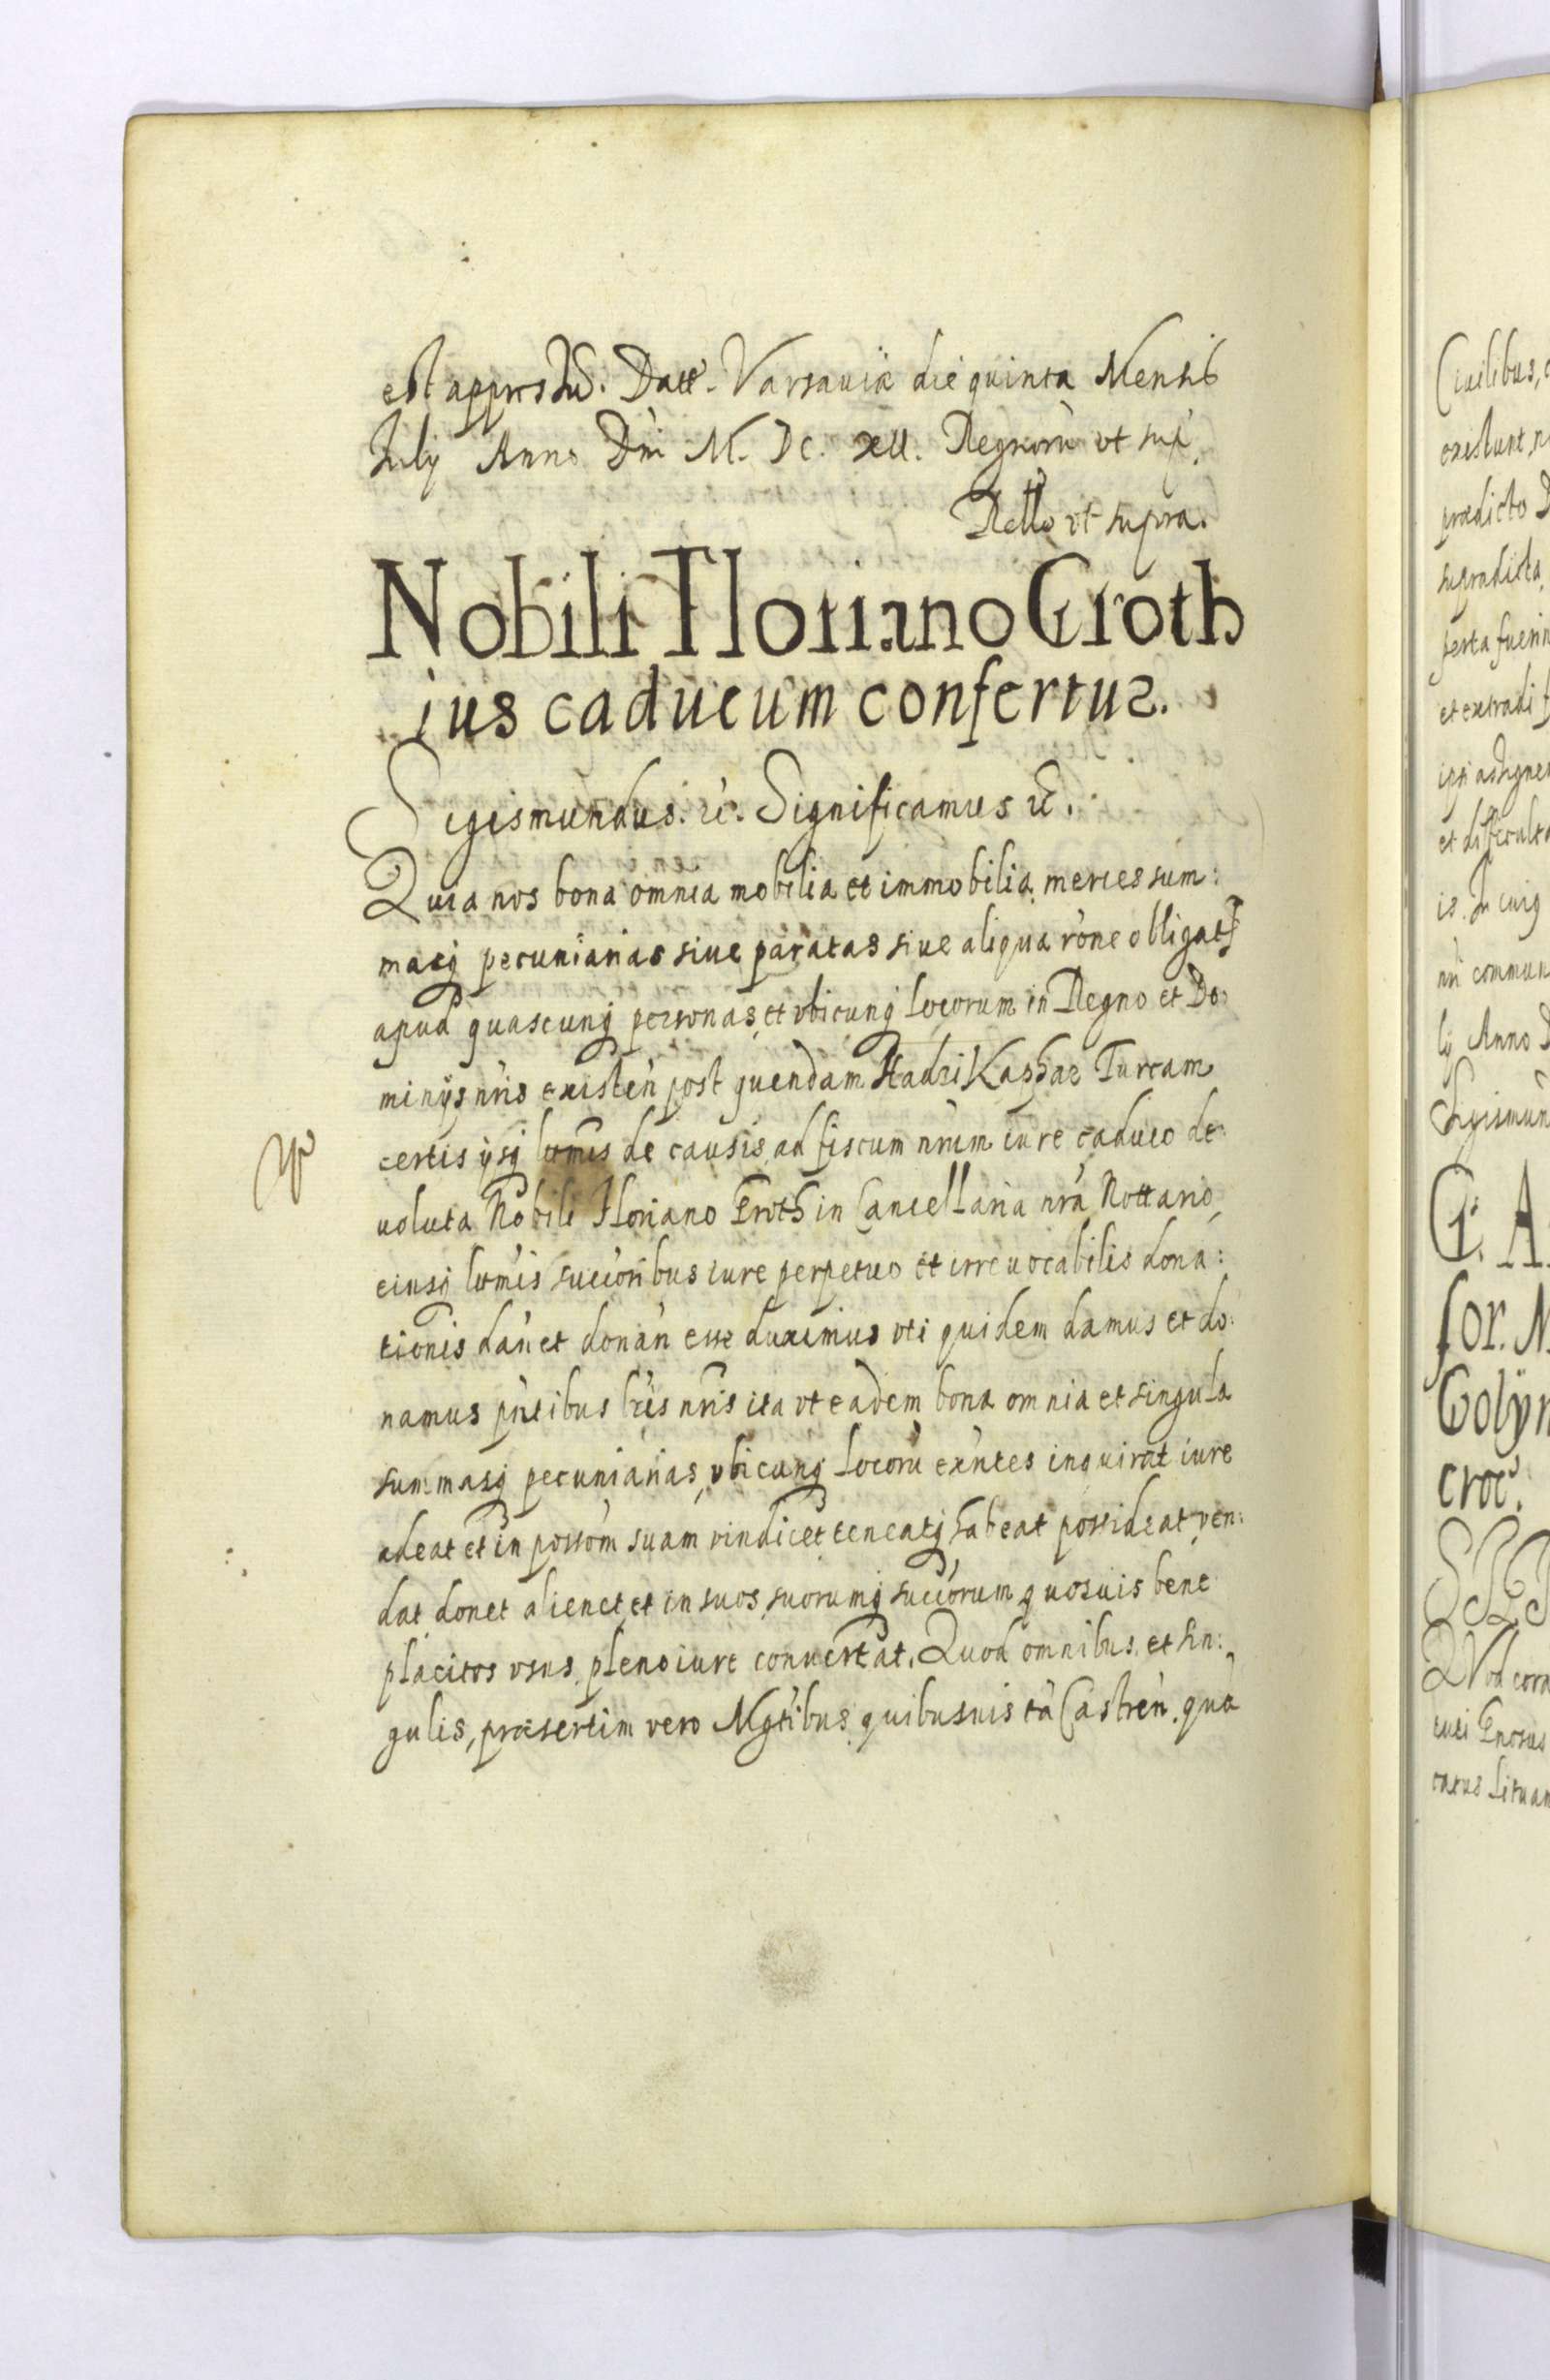 est appressu͂. Datt. Varsauiæ die quinta Mensis
July Anno Dni M. DC. XII. Regnorũ vt sup̃.
Rello vt supra.
Nobili Floriano Groth
ius caducum confertur.
Sigismundus. &c. Significamus &c.
Quia nos bona omnia mobilia et immobilia, merces sum:
masq̃ pecuniarias siue paratas siue aliqua rõne obligat
apud quascunq̃ personas, et vbicunq̃ locorum in Regno et Do:
minijs nr̃is existeñ post quendam Hadzi Kaphar Turcam
certis ijsq̃ ltimis de causis, ad fiscum nr̃um iure caduco de:
uoluta Nobili Floriano Groth in Cancellaria nrã Nottario,
eiusq̃ ltimis succoribus iure perpetuo et irreuocabilis dona:
tionis dañ et donañ esse duximus vti quidem damus et do:
namus pñtibus lr̃is nr̃is ita vt eadem bona omnia et singula
summasq̃ pecuniarias, vbicunq̃ locorũ exñtes inquirat iure
adeat et in possõm suam vindicet teneatq̃ habeat possideat ven:
dat donet alienet et in suos, suorumq̃ succorum quosuis bene
placitos vsus pleno iure conuertat. Quod omnibus et sin:
gulis, præsertim vero Mgr̃tibus quibusuis tã Castreñ. quã
Ciuilibus,
existunt,
prædicto
supradicta,
et extradi
ipsi assigne
is. In cuiq
nri commun
ly Anno
Sigismun
G. A.
for. M.
Golyn
croc.
Quod cora
catus Lituan